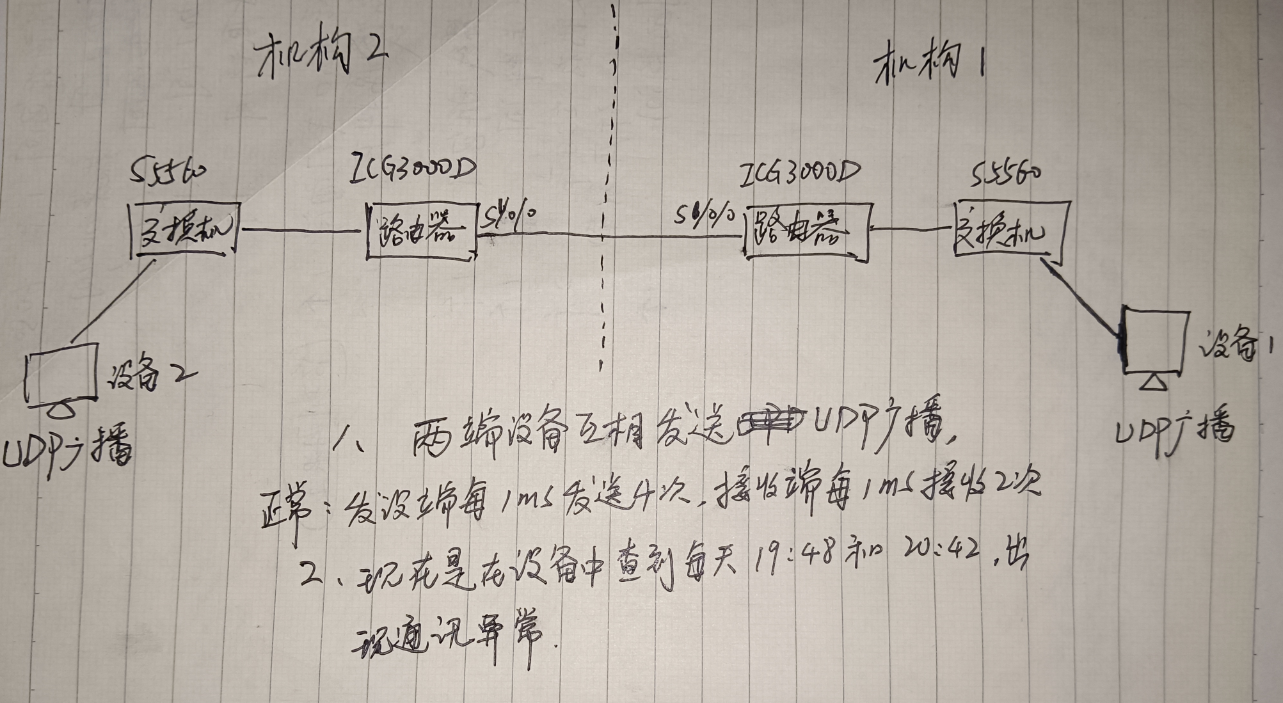 机构2
机构1
S5560
ICG3000D
ICG3000D
S5560
交换机
路由器
S1/0/0
S1/0/0
路由器
交换机
设备2
设备1
UDP广播
UDP广播
1、两端设备互相发送UDP广播,
正常:发设端每1ms发送4次,接收端每1ms接收2次
2、现在是在设备中查到每天19:48和20:42,出
现通讯异常.